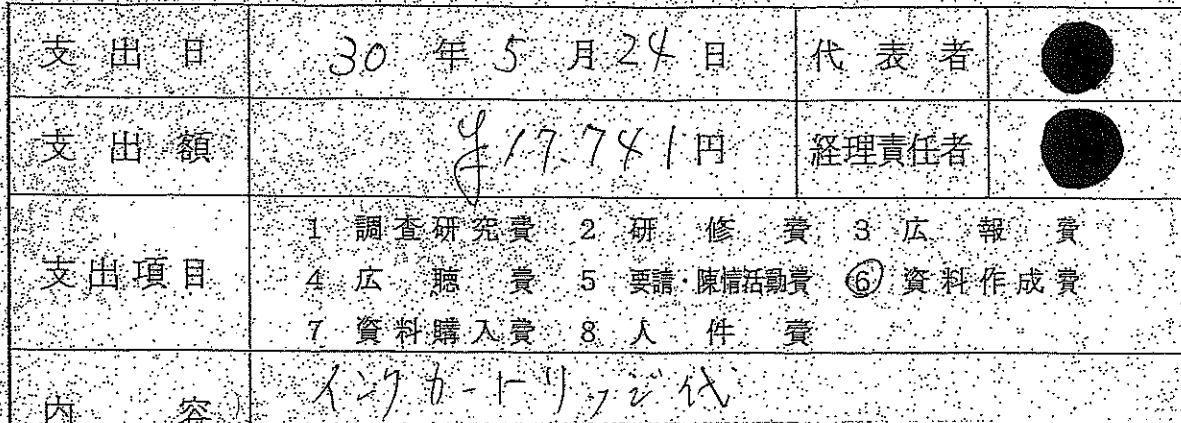 支出日 30年5月24日 代表者
支出額 ¥17.741円 経理責任者
支出項目
1 調査研究費 2 研修費 3 広報費
4 広聴費 5 要請・陳情活動費 ⑥ 資料作成費
7 資料購入費 8 人件費
内容 インクカートリッジ代